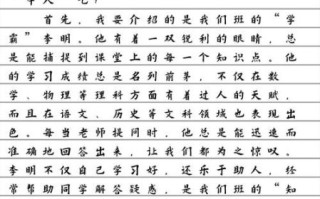 首先，我要介绍的是我们班的“学
霸”李明。他有着一双锐利的眼睛，总
是能捕捉到课堂上的每一个知识点。他
的学习成绩总是名列前茅，不仅在数
学、物理等理科方面有着过人的天赋，
而且在语文、历史等文科领域也表现出
色。每当老师提问时，他总是能迅速而
准确地回答出来，让我们都为之惊叹。
李明不仅自己学习好，还乐于助人，经
常帮助同学解答疑惑，是我们班的“知